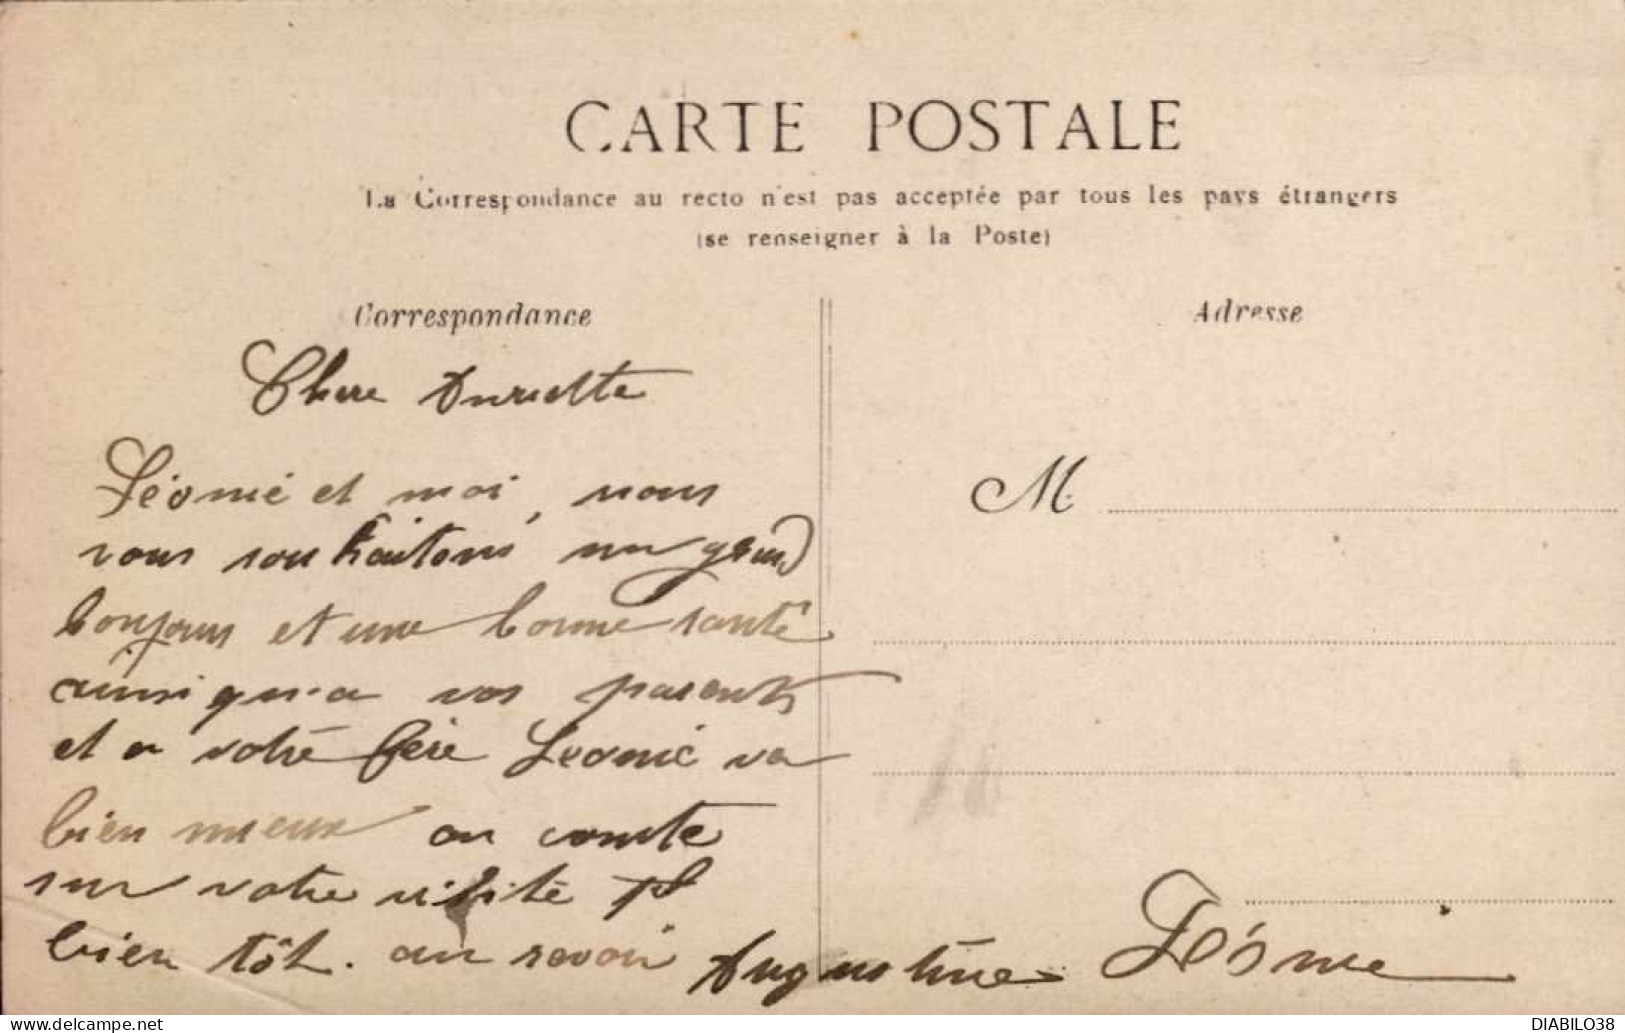 CARTE POSTALE
La Correspondance au recto n'est pas acceptée par tous les pays étrangers
(se renseigner à la Poste)
Correspondance
Adresse
Chere
Léonie et moi, nous
M.
vous souhaitons un grand
bonjour et une bonne santé
ainsi qu'a vos parents
et a votre Leonie va
bien mieux on comte
sur votre visite
bien tôt. au revoir Augustine Léonie
delcampe.net
DIABILO38